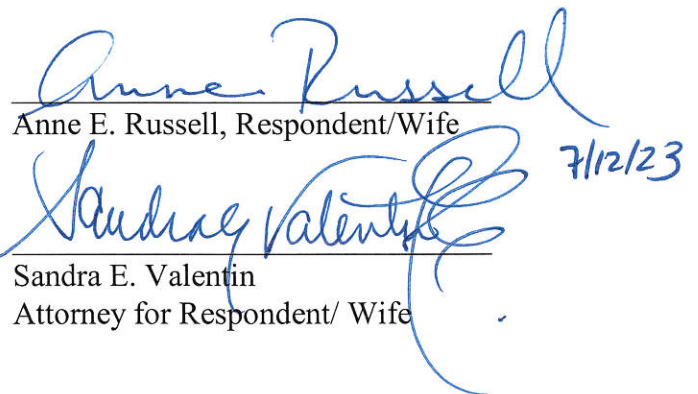 Anne Russell
Anne E. Russell, Respondent/Wife
7/12/23
Sandra Valentin
Sandra E. Valentin
Attorney for Respondent/ Wife